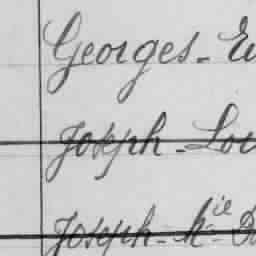 Georges-Eu
Joseph-Lou
Joseph-Mie